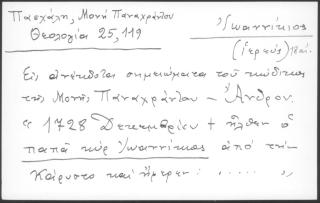 Πασχάλη, Μονή Παναχράντου
Θεολογία 25, 119
Ἰωαννίκιος
(ἱερεύς) 18 αἰ.
Εἰς ἀνέκδοτα σημειώματα τοῦ κώδικος
τῆς Μονῆς Παναχράντου – Ἄνδρου.
" 1728 Δεκεμβρίου + ἦλθεν ὁ
παπᾶ κὺρ Ἰωαννίκιος ἀπὸ τὴν
Κάρυστο καὶ ἤφερεν: ..... "